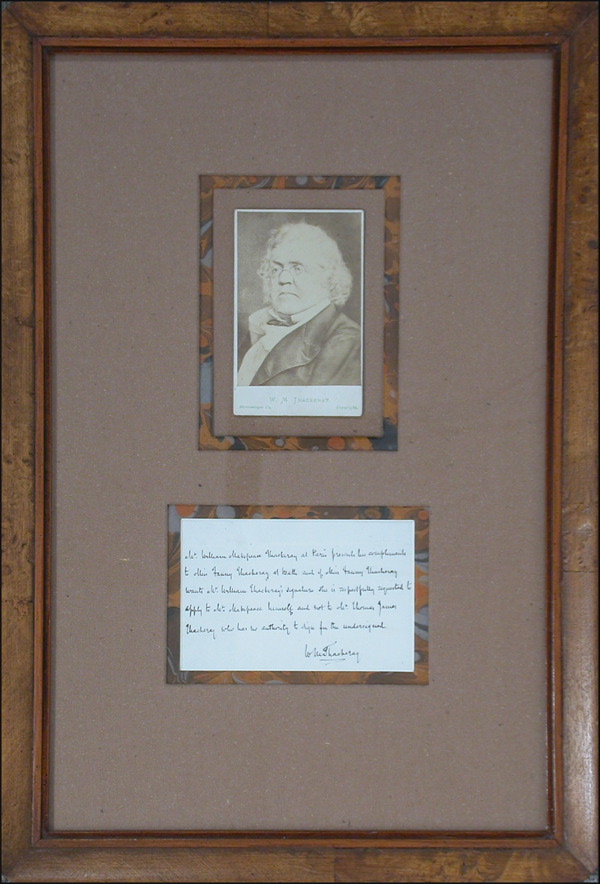 W. M. THACKERAY
Mr. William Makepeace Thackeray at Paris presents his compliments
to Miss Fanny Thackeray at Bath and if Miss Fanny Thackeray
wants Mr. William Thackeray's signature she is respectfully requested to
apply to Mr. Makepeace himself and not to Mr. Thomas James
Thackeray who has no authority to sign for the undersigned
W M Thackeray